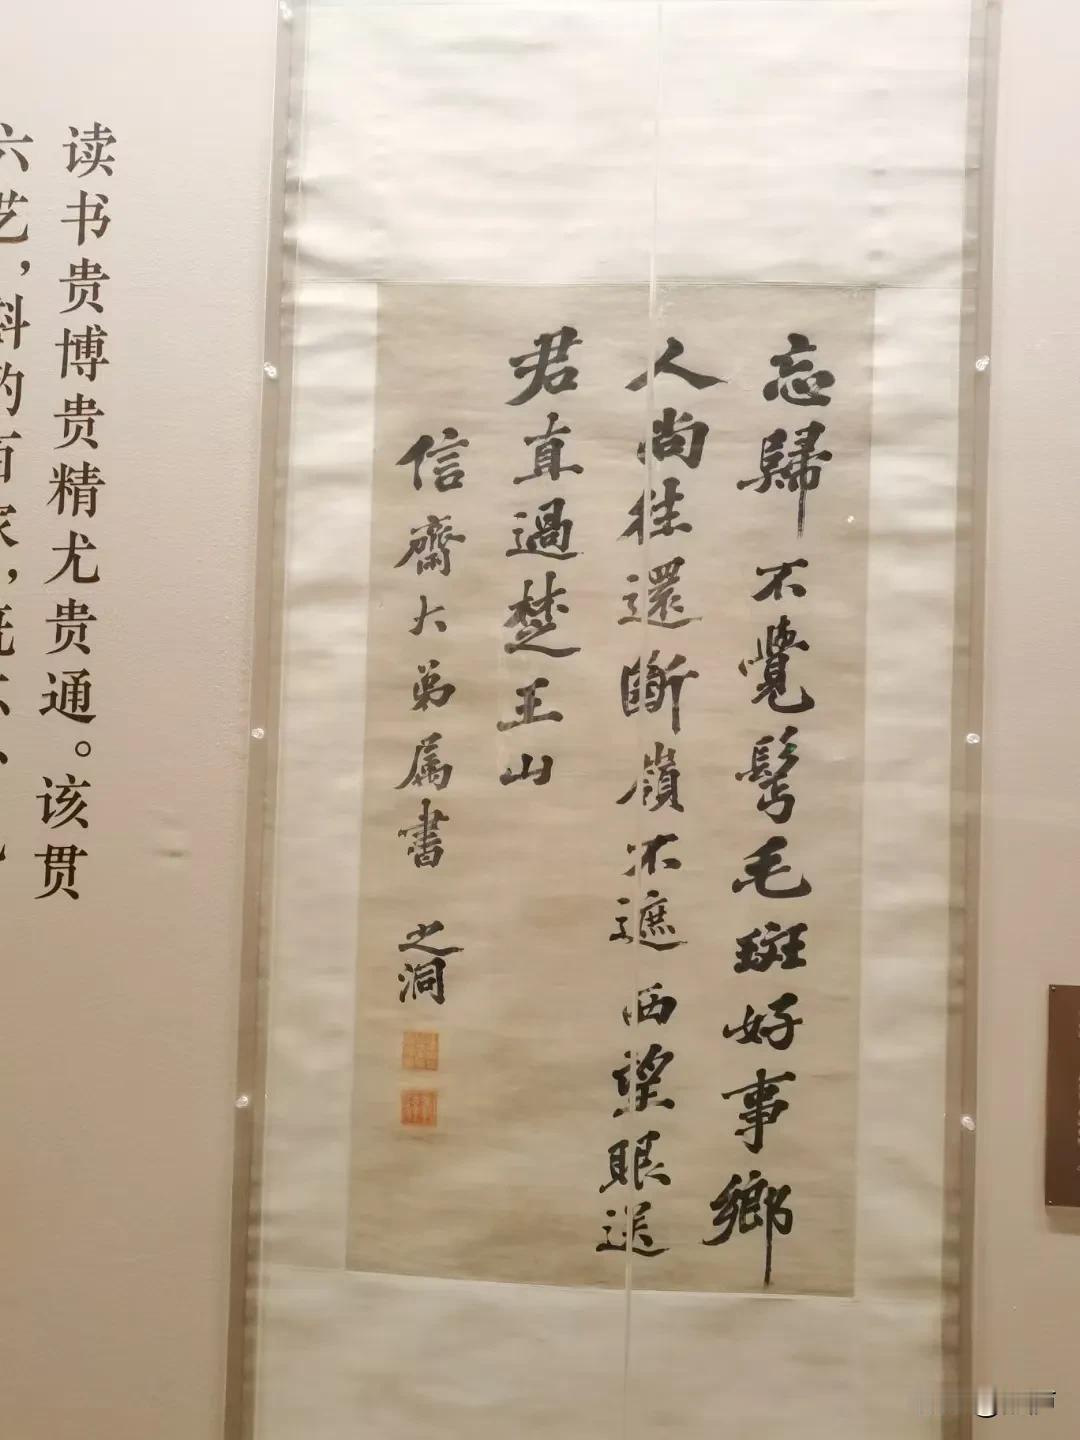 忘歸不覺鬢毛斑好事鄉
人尚往還斷嶺不遮西望眼送
君直過楚王山
信齋大弟属書 之洞
读书贵博贵精尤贵通。该贯
六艺，斟酌百家，既不